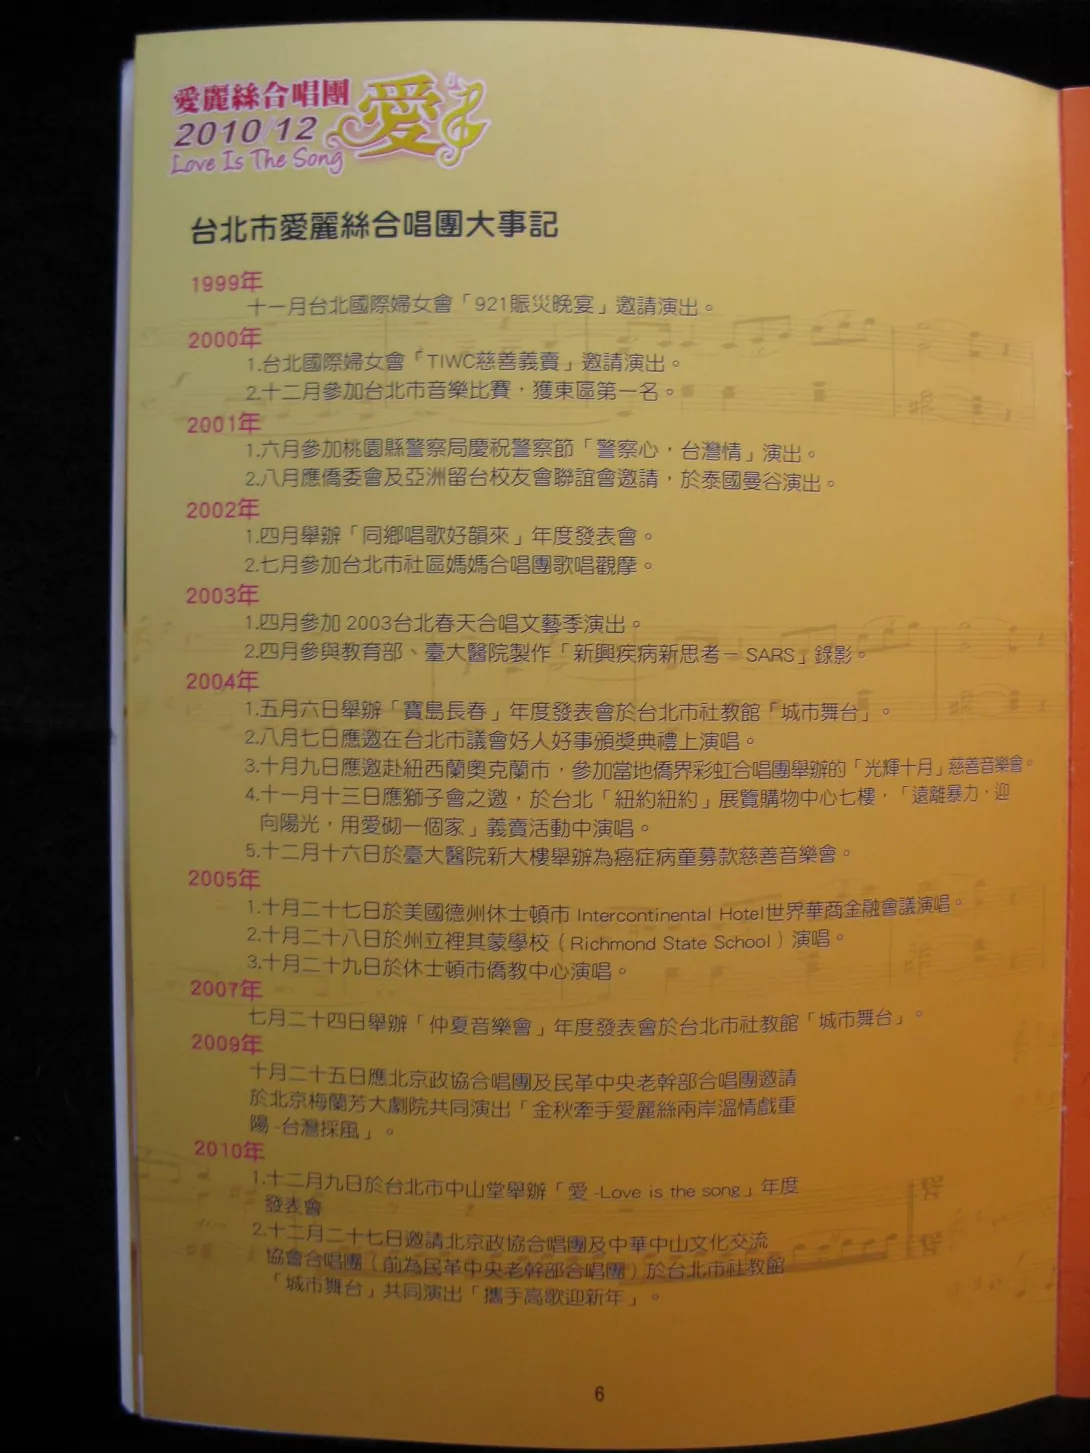 愛麗絲合唱團
2010/12
Love Is The Song
愛
台北市愛麗絲合唱團大事記
1999年
十一月台北國際婦女會「921賑災晚宴」邀請演出。
2000年
1.台北國際婦女會「TIWC慈善義賣」邀請演出。
2.十二月參加台北市音樂比賽，獲東區第一名。
2001年
1.六月參加桃園縣警察局慶祝警察節「警察心，台灣情」演出。
2.八月應僑委會及亞洲留台校友會聯誼會邀請，於泰國曼谷演出。
2002年
1.四月舉辦「同鄉唱歌好韻來」年度發表會。
2.七月參加台北市社區媽媽合唱團歌唱觀摩。
2003年
1.四月參加 2003台北春天合唱文藝季演出。
2.四月參與教育部、臺大醫院製作「新興疾病新思考－ SARS」錄影。
2004年
1.五月六日舉辦「寶島長春」年度發表會於台北市社教館「城市舞台」。
2.八月七日應邀在台北市議會好人好事頒獎典禮上演唱。
3.十月九日應邀赴紐西蘭奧克蘭市，參加當地僑界彩虹合唱團舉辦的「光輝十月」慈善音樂會。
4.十一月十三日應獅子會之邀，於台北「紐約紐約」展覽購物中心七樓，「遠離暴力，迎
向陽光，用愛砌一個家」義賣活動中演唱。
5.十二月十六日於臺大醫院新大樓舉辦為癌症病童募款慈善音樂會。
2005年
1.十月二十七日於美國德州休士頓市 Intercontinental Hotel世界華商金融會議演唱。
2.十月二十八日於州立裡其蒙學校（Richmond State School）演唱。
3.十月二十九日於休士頓市僑教中心演唱。
2007年
七月二十四日舉辦「仲夏音樂會」年度發表會於台北市社教館「城市舞台」。
2009年
十月二十五日應北京政協合唱團及民革中央老幹部合唱團邀請
於北京梅蘭芳大劇院共同演出「金秋牽手愛麗絲兩岸溫情戲重
陽 -台灣採風」。
2010年
1.十二月九日於台北市中山堂舉辦「愛 -Love is the song」年度
發表會
2.十二月二十七日邀請北京政協合唱團及中華中山文化交流
協會合唱團（前為民革中央老幹部合唱團）於台北市社教館
「城市舞台」共同演出「攜手高歌迎新年」。
6